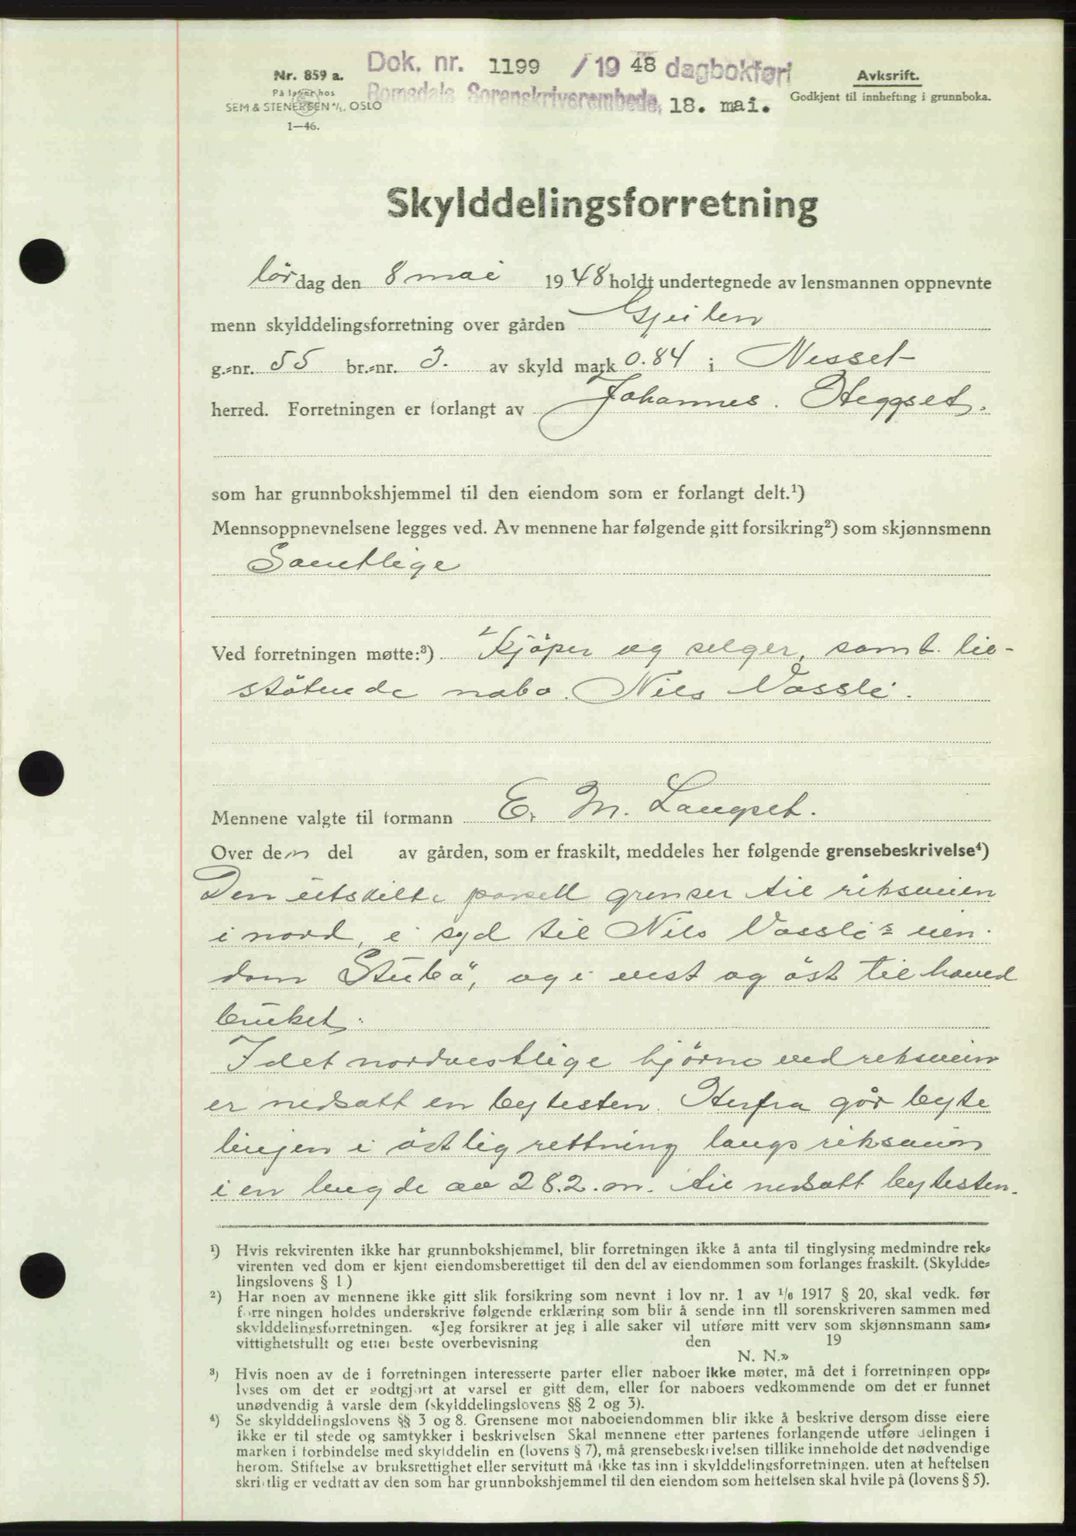 Dok. nr. 1199 /1948 dagbokført
Romsdals Sorenskriverembede, 18. mai.
Nr. 859 a.
På lager hos
SEM & STENERSEN A/S, OSLO
1—46.
Avskrift.
Godkjent til innhefting i grunnboka.
Skylddelingsforretning
Lørdag den 8 mai 1948 holdt undertegnede av lensmannen oppnevnte
menn skylddelingsforretning over gården Gjeilen
g.-nr. 55 br.-nr. 3. av skyld mark 0.84 i Nesset
herred. Forretningen er forlangt av Johannes. Heggset.
som har grunnbokshjemmel til den eiendom som er forlangt delt.¹)
Mennsoppnevnelsene legges ved. Av mennene har følgende gitt forsikring²) som skjønnsmenn
Samtlige
Ved forretningen møtte:³) Kjøper og selger, samt tie-
støtende nabo. Nils Vassli.
Mennene valgte til formann E. M. Langset.
Over den del av gården, som er fraskilt, meddeles her følgende grensebeskrivelse⁴)
Den utskilte parsell grenser til riksveien
i nord, i syd til Nils Vassli's eien-
dom "Stubø", og i vest og øst til hoved
bruket.
I det nordvestlige hjørne ved riksveien
er nedsatt en bytesten. Herfra går byte
linjen i østlig rettning langs riksveien
i en lengde av 28.2. m. til nedsatt bytesten.
¹) Hvis rekvirenten ikke har grunnbokshjemmel, blir forretningen ikke å anta til tinglysing medmindre rek-
virenten ved dom er kjent eiendomsberettiget til den del av eiendommen som forlanges fraskilt. (Skyldde-
lingslovens § 1)
²) Har noen av mennene ikke gitt slik forsikring som nevnt i lov nr. 1 av 1/6 1917 § 20, skal vedk. før
forretningen holdes underskrive følgende erklæring som blir å sende inn til sorenskriveren sammen med
skylddelingsforretningen. «Jeg forsikrer at jeg i alle saker vil utføre mitt verv som skjønnsmann sam-
vittighetsfullt og etter beste overbevisning den 19
N. N.»
³) Hvis noen av de i forretningen interesserte parter eller naboer ikke møter, må det i forretningen opp-
lyses om det er godtgjort at varsel er gitt dem, eller for naboers vedkommende om det er funnet
unødvendig å varsle dem (skylddelingslovens §§ 2 og 3).
⁴) Se skylddelingslovens §§ 3 og 8. Grensene mot naboeiendommen blir ikke å beskrive dersom disse eiere
ikke er til stede og samtykker i beskrivelsen Skal mennene etter partenes forlangende utføre delingen i
marken i forbindelse med skylddelingen (lovens § 7), må grensebeskrivelsen tillike inneholde det nødvendige
herom. Stiftelse av bruksrettighet eller servitutt må ikke tas inn i skylddelingsforretningen, uten at heftelsen
skriftlig er vedtatt av den som har grunnbokshjemmel til den eiendom som heftelsen skal hvile på (lovens § 5).